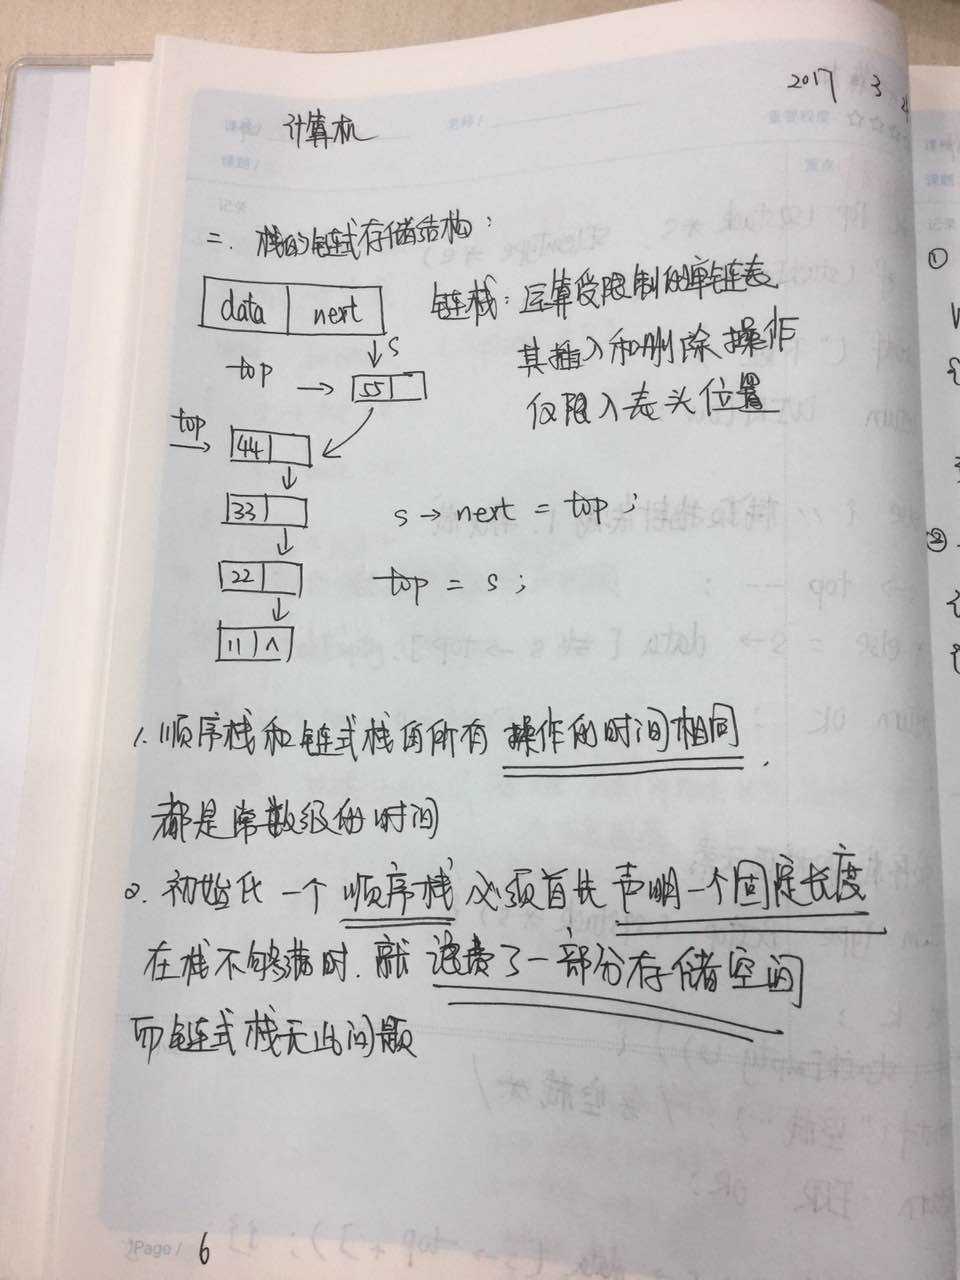 2017 3
课程/ 计算机 老师/ 重要程度 ☆☆☆
课题/ 重点
记录
二. 栈的链式存储结构:
data next
链栈: 运算受限制的单链表
其插入和删除操作
仅限入表头位置
s
top → 55
top → 44
33
s → next = top;
22
top = s;
11 ∧
1. 顺序栈和链式栈的所有操作的时间相同,
都是常数级的时间
2. 初始化一个顺序栈必须首先声明一个固定长度
在栈不够满时. 就浪费了一部分存储空间
而链式栈无此问题
Page / 6
课题
记录
①
②